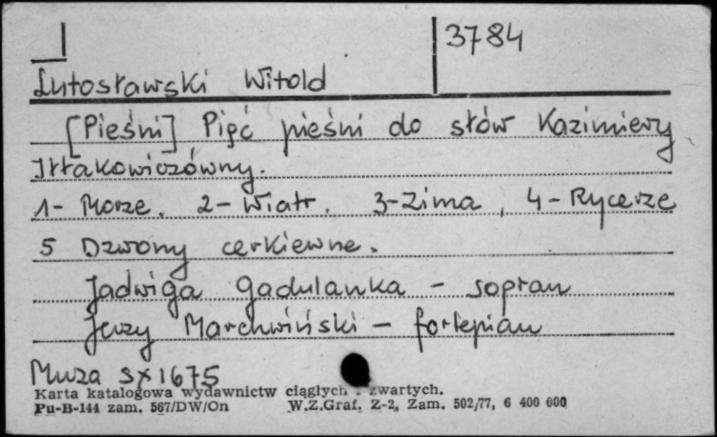 3784
Lutosławski Witold
[Pieśni] Pięć pieśni do słów Kazimiery
Iłłakowiczówny.
1- Morze. 2- Wiatr. 3-Zima, 4-Rycerze
5 Dzwony cerkiewne.
Jadwiga Gadulanka - sopran
Jerzy Marchwiński - fortepian
Muza SX1675
Karta katalogowa wydawnictw ciągłych i zwartych.
Pu-B-144 zam. 567/DW/On W.Z.Graf. Z-2, Zam. 502/77, 6 400 000